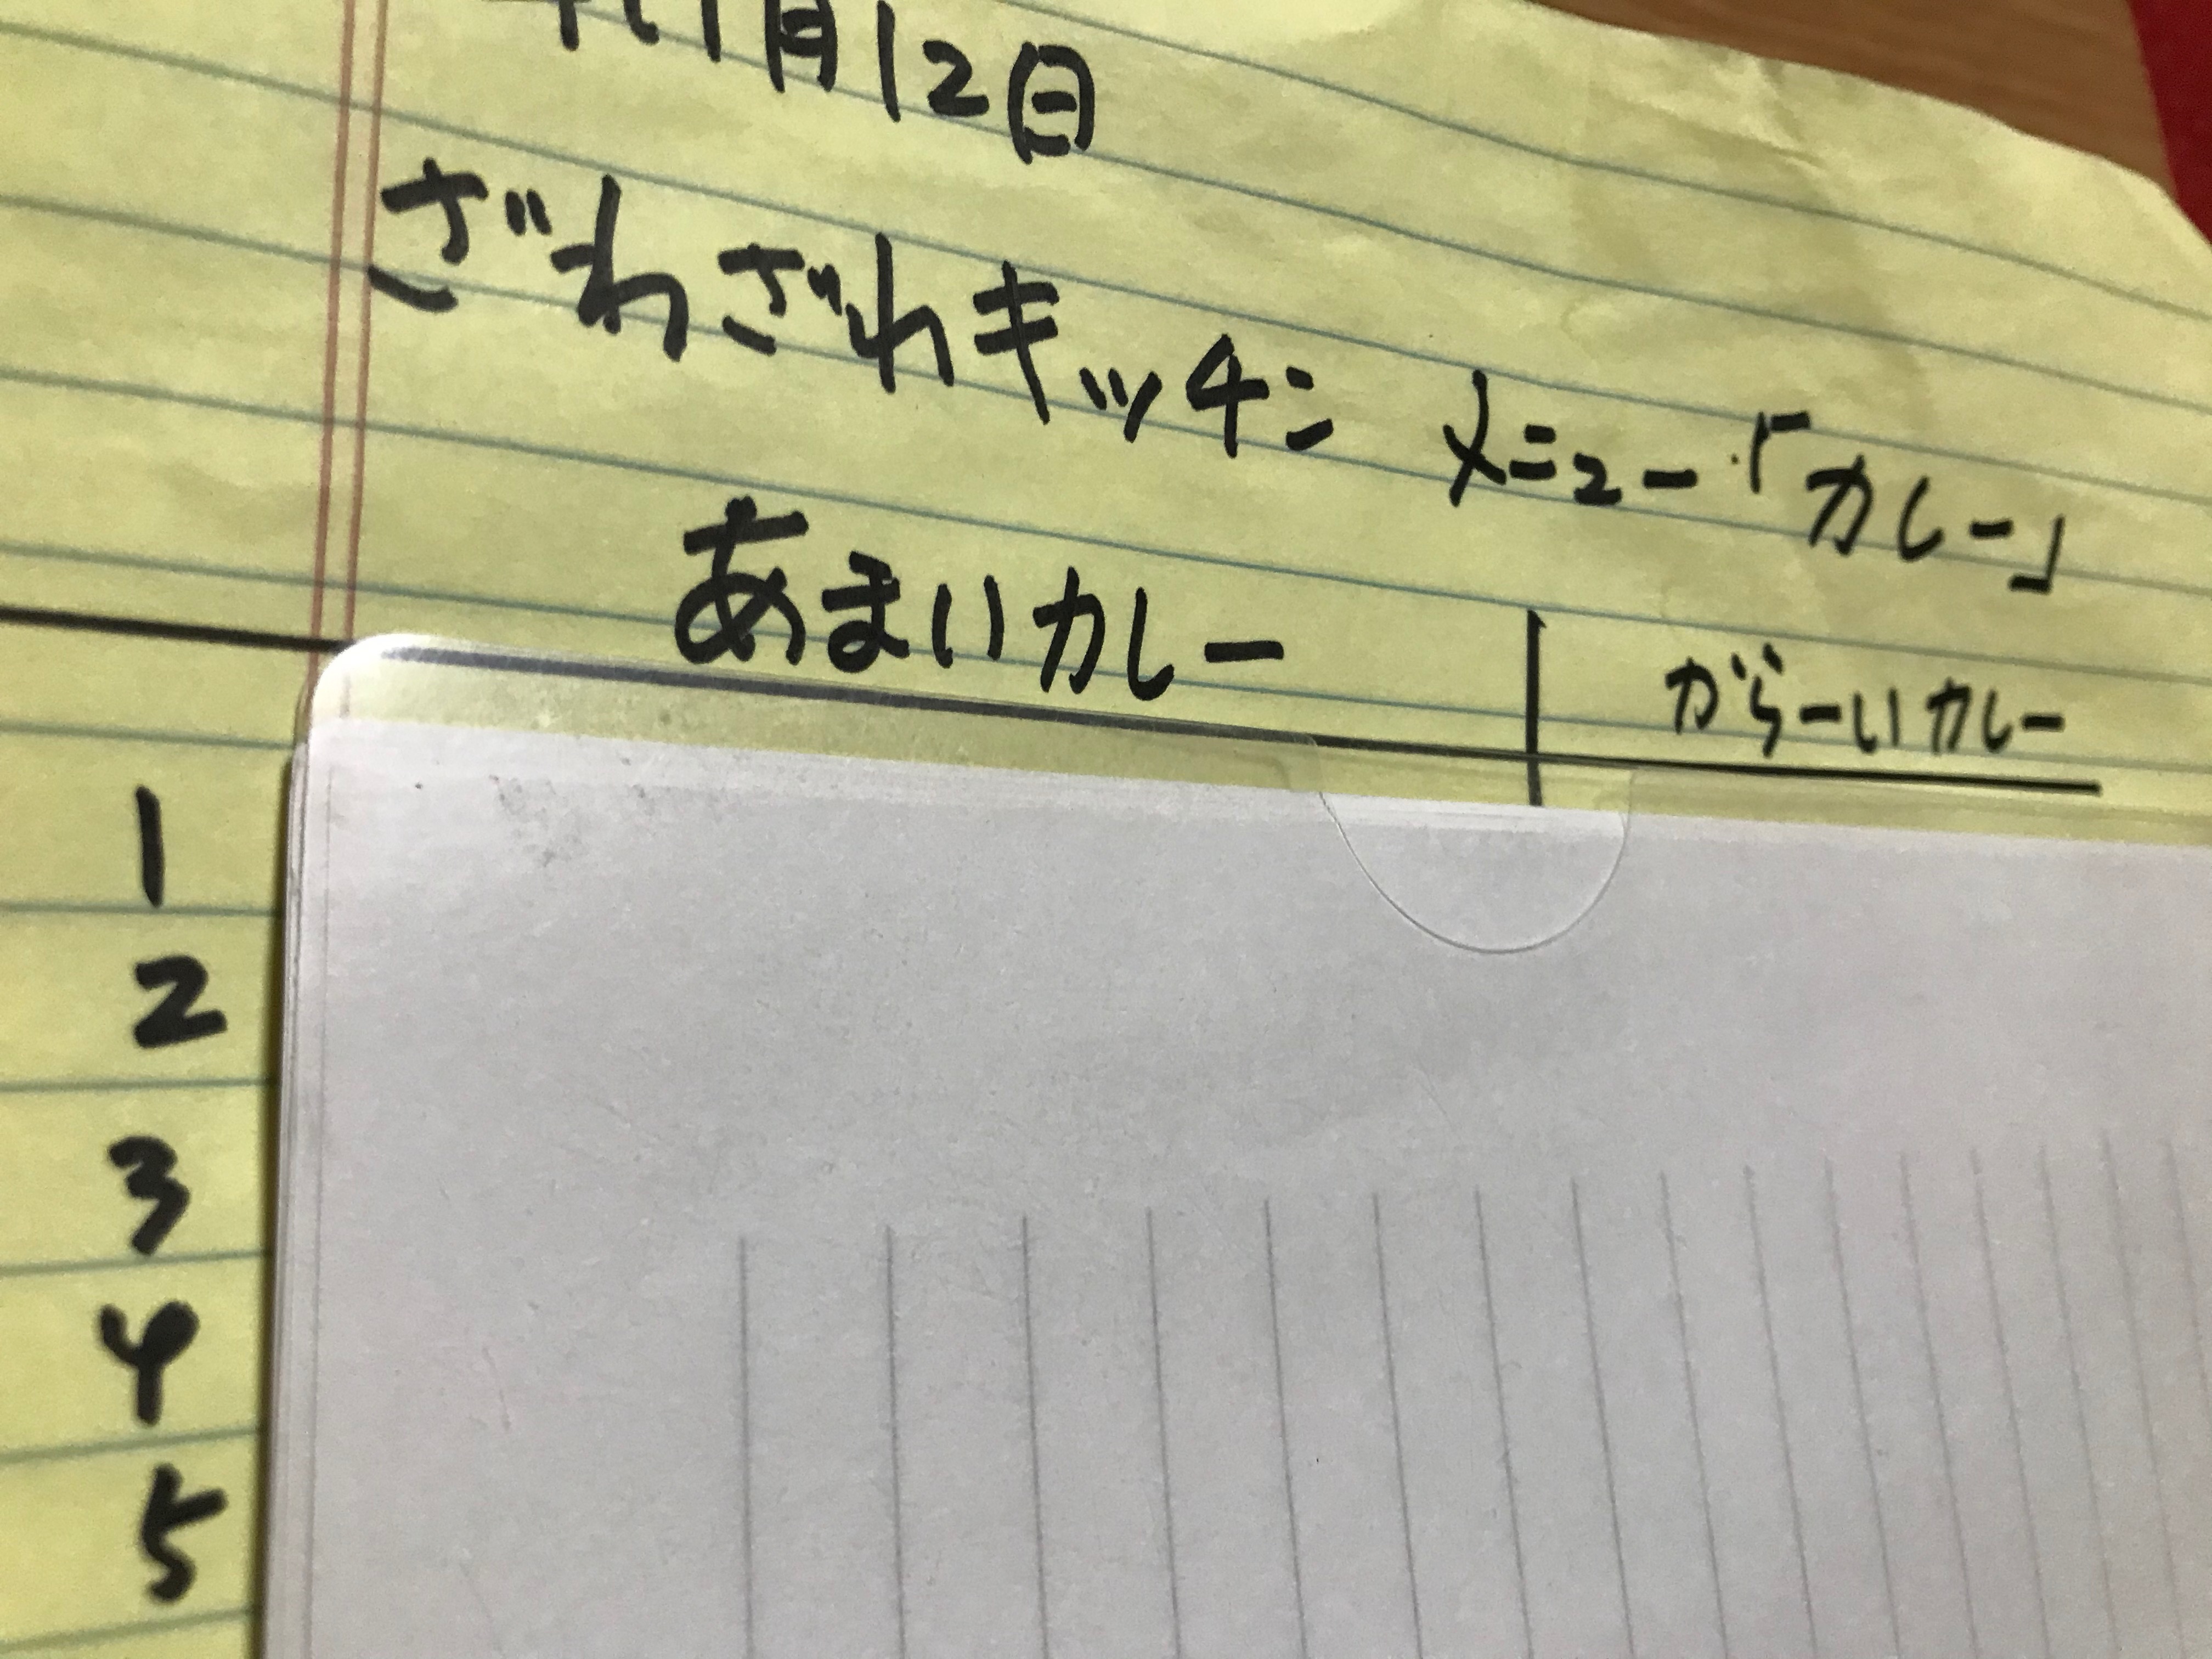 1月12日
ざわざわキッチン メニュー「カレー」
あまいカレー がらーいカレー
1
2
3
4
5